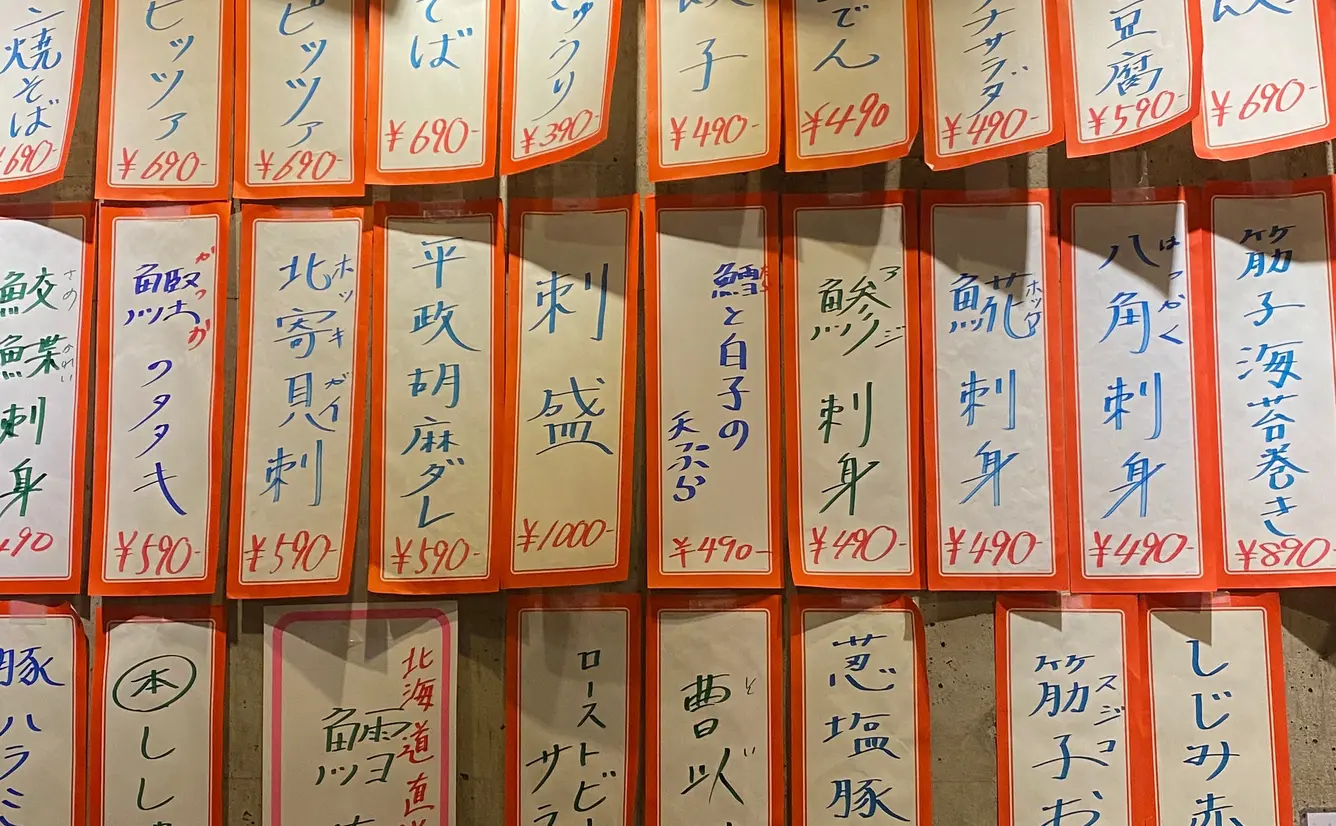 焼そば
¥690-
ピッツァ
¥690-
ピッツァ
¥690-
そば
¥690-
きゅうり
¥390-
子
¥490-
でん
¥490
ナサラダ
¥490-
豆腐
¥590-
¥690-
さめ
かれい
刺身
490
かつお
タタキ
¥590-
北寄貝刺
ホッキガイ
¥590-
平政胡麻ダレ
¥590-
刺盛
¥1000-
鱈と白子の
天ぷら
¥490-
鯵刺身
アジ
¥490-
刺身
ホッケ
¥490-
八角刺身
はっかく
¥490-
筋子海苔巻き
¥890-
豚ハラミ
本
しし
北海道直送
鱈
ローストビー
サラ
曹以
葱塩豚
筋子お
スジコ
しじみ赤